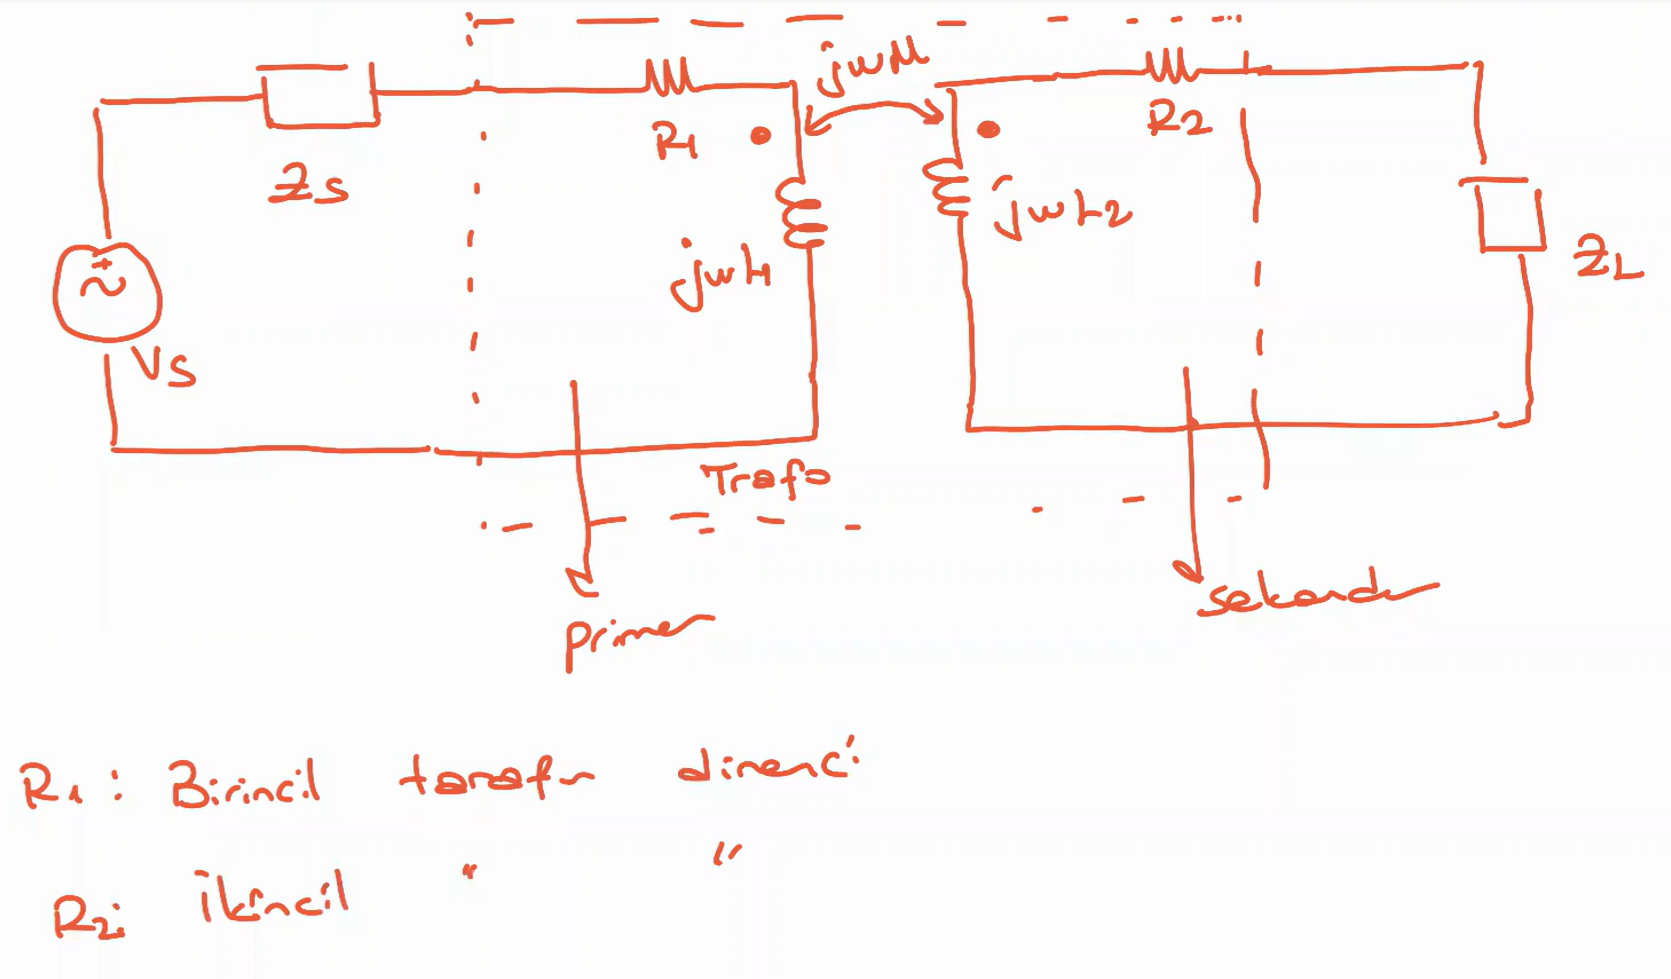 jwM
R1
R2
Zs
jwL1
jwL2
ZL
+
Vs
Trafo
primer
sekonder
R1: Birincil tarafın direnci
R2: İkincil " "